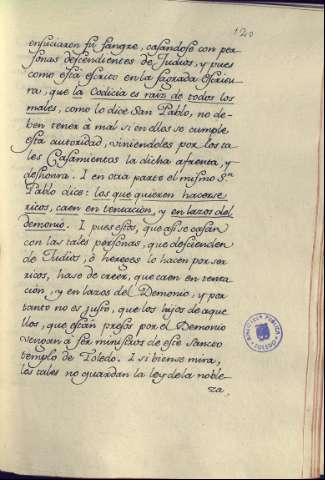 120
ensuciaron su sangre, casandose con per-
sonas descendientes de Judios, y pues
como está escrito en la sagrada escritu-
ra, que la Codicia es raiz de todos los
males, como lo dice San Pablo, no de-
ben tener à mal si en ellos se cumple
esta autoridad, viniendoles por los ta-
les Casamientos la dicha afrenta, y
deshonra. I en otra parte el mismo Sn.
Pablo dice: los que quieren hacerse
ricos, caen en tentacion, y en lazos del
demonio. I pues estos, que assi se casan
con las tales personas, que descienden
de Judios, ò hereges lo hacen por ser
ricos, hase de creer, que caen en tenta-
cion, y en lazos del Demonio, y por
tanto no es justo, que los hijos de aque-
llos, que están presos por el Demonio
vengan à ser ministros de este sancto
templo de Toledo. I si biense mira,
los tales no guardan la ley de la noble-
za,
BIBLIOTECA PUBLICA
TOLEDO